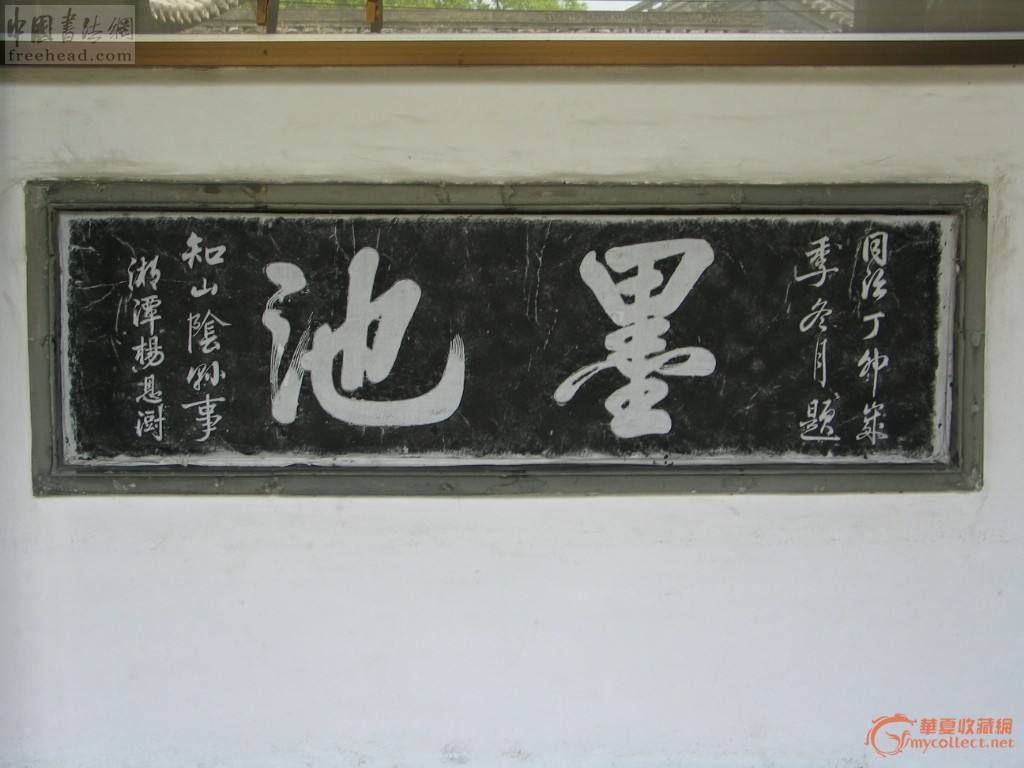 中国書法網
freehead.com
同治丁卯嵗
季冬月題
墨池
知山陰縣事
湘潭楊恩澍
華夏收藏網
mycollect.net